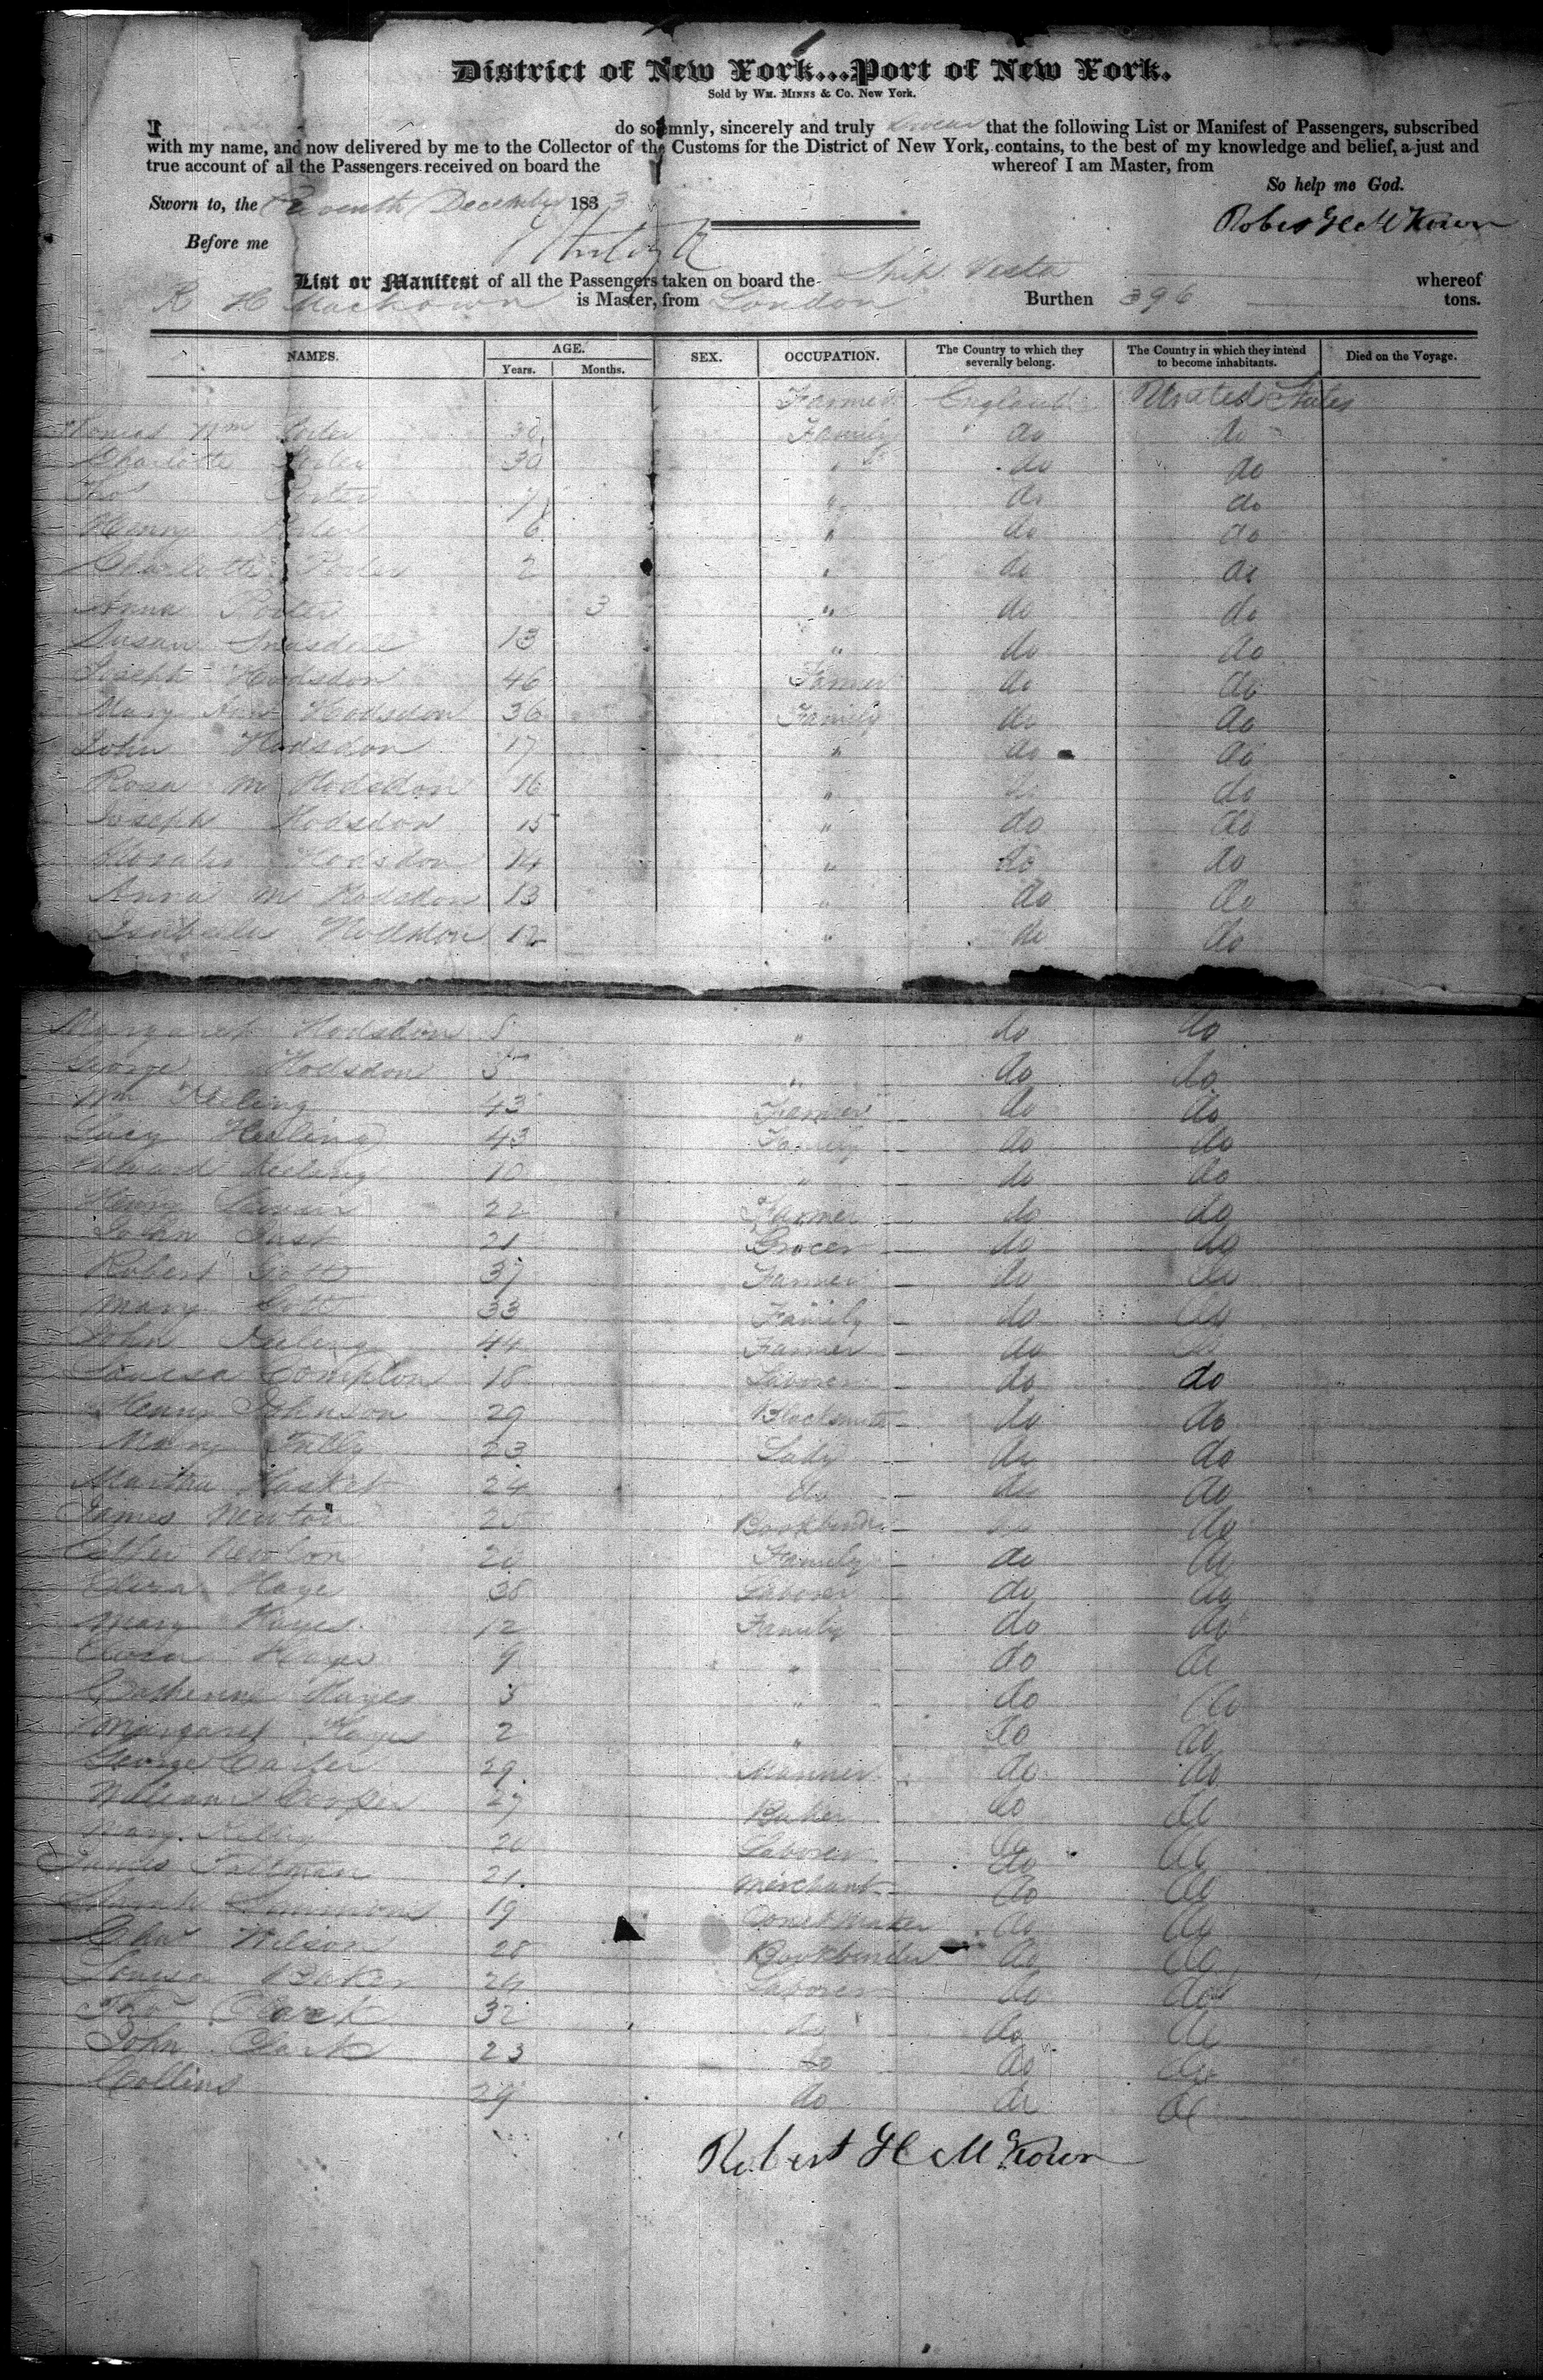 District of New York...Port of New York.
Sold by Wm. Minns & Co. New York.
I do solemnly, sincerely and truly swear that the following List or Manifest of Passengers, subscribed
with my name, and now delivered by me to the Collector of the Customs for the District of New York, contains, to the best of my knowledge and belief, a just and
true account of all the Passengers received on board the whereof I am Master, from
So help me God.
Sworn to, the December 1833
Robert H McKown
Before me
List or Manifest of all the Passengers taken on board the Ship Vesta whereof
R H Mackown is Master, from London Burthen 396 tons.
NAMES. AGE. Years. Months. SEX. OCCUPATION. The Country to which they severally belong. The Country in which they intend to become inhabitants. Died on the Voyage.
Farmer England United States
Thomas Wm Porter 30 Family do do
Charlotte Porter 30 " do do
Thos Porter 7 " do do
Henry Porter 6 " do do
Charlotte Porter 2 " do do
Anna Porter 3 " do do
Susan 13 " do do
Joseph Hodsdon 46 Farmer do do
Mary Ann Hodsdon 36 Family do do
John Hodsdon 17 " do do
Rosa M Hodsdon 16 " do do
Joseph Hodsdon 15 " do do
Hodsdon 14 " do do
Anna M Hodsdon 13 " do do
Isabella Hodsdon 12 " do do
Margaret Hodsdon 8 " do do
George Hodsdon 5 " do do
Wm 43 Farmer do do
Lucy 43 Family do do
Edward 10 " do do
Henry 22 Farmer do do
John 21 Grocer do do
Robert Gott 37 Farmer do do
Mary Gott 33 Family do do
John 44 Farmer do do
Louisa Compton 18 Laborer do do
Henry Johnson 29 Blacksmith do do
Mary Tully 23 Lady do do
Martha Hasket 24 do do do
James Newton 25 Bookbinder do do
Esther Newton 20 Family do do
Haye 38 Laborer do do
Mary Hayes 12 Family do do
Hays 9 " do do
Catherine Hayes 5 " do do
Margaret Hayes 2 " do do
George Carter 29 Mariner do do
William Cooper 27 Baker do do
Mary Kelley 20 Laborer do do
James Tallman 21 Merchant do do
Simmons 19 do do
John Wilson 28 Bookbinder do do
Louisa Baker 24 Laborer do do
Thos Clark 32 do do do
John Clark 23 do do do
Collins 29 do do do
Robert H McKown